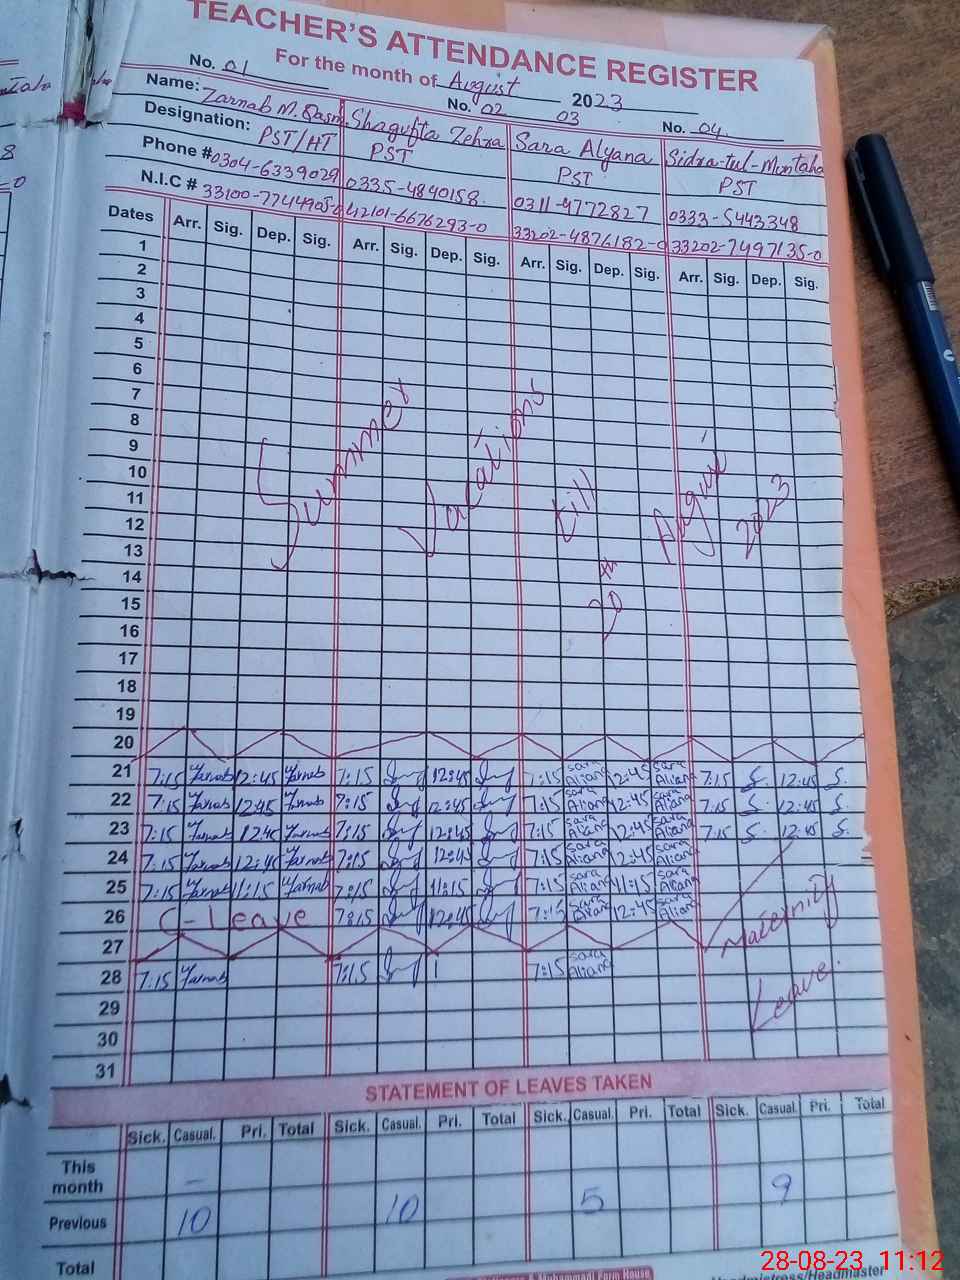 TEACHER'S ATTENDANCE REGISTER
For the month of August 2023
No. 01 No. 02 03 No. 04
Name: Zarnab M. Qasm Shagufta Zehra Sara Alyana Sidra-tul-Muntaha
Designation: PST/HT PST PST PST
Phone # 0304-6339029 0335-4840158 0311-4772827 0333-5443348
N.I.C # 42101-6676293-0 33202-7497135-0
Dates Arr. Sig. Dep. Sig. Arr. Sig. Dep. Sig. Arr. Sig. Dep. Sig. Arr. Sig. Dep. Sig.
1
2
3
4
5
6
7
8
9
10
11
12
13
14
15
16
17
18
19
20
Summer Vacations till 20th August 2023
21 7:15 Zarnab 12:45 Zarnab 7:15 12:45 7:15 Sara Aliana 12:45 Sara Aliana 7:15 S. 12:45 S.
22 7:15 Zarnab 12:45 Zarnab 7:15 12:45 7:15 Sara Aliana 12:45 Sara Aliana 7:15 S. 12:45 S.
23 7:15 Zarnab 12:45 Zarnab 7:15 12:45 7:15 Sara Aliana 12:45 Sara Aliana 7:15 S. 12:45 S.
24 7:15 Zarnab 12:45 Zarnab 7:15 12:45 7:15 Sara Aliana 12:45 Sara Aliana
25 7:15 Zarnab 11:15 Zarnab 7:15 11:15 7:15 Sara Aliana 11:15 Sara Aliana
26 C-Leave 7:15 12:45 7:15 Sara Aliana 12:45 Sara Aliana
27
28 7:15 Zarnab 7:15 7:15 Sara Aliana
Maternity Leave.
29
30
31
STATEMENT OF LEAVES TAKEN
Sick. Casual. Pri. Total Sick. Casual. Pri. Total Sick. Casual. Pri. Total Sick. Casual. Pri. Total
This month –
Previous 10 10 5 9
Total
28-08-23 11:12